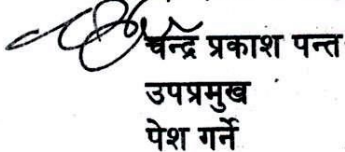 चन्द्र प्रकाश पन्त
उपप्रमुख
पेश गर्ने